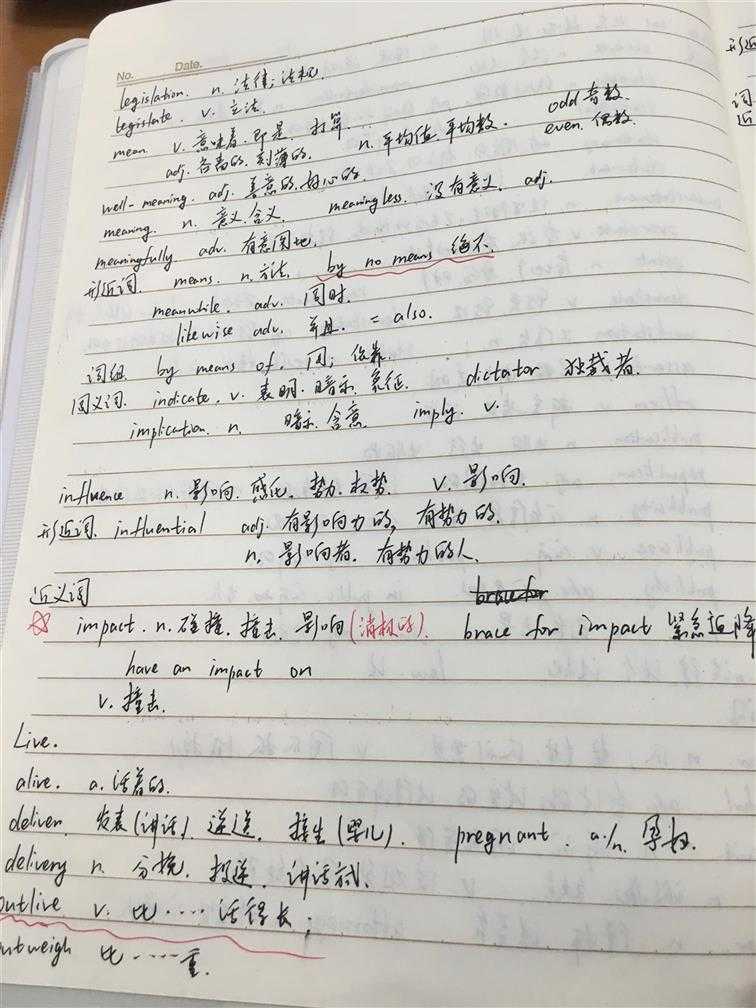 No. Date.
legislation. n. 法律;法规.
legislate. v. 立法.
mean v. 意味着.即是.打算... odd 奇数.
adj. 吝啬的.刻薄的. n.平均值.平均数. even. 偶数.
well-meaning. adj. 善意的.好心的.
meaning. n. 意义.含义. meaningless. 没有意义. adj.
meaningfully adv. 有意图地.
形近词. means. n.方法. by no means 绝不.
meanwhile. adv. 同时.
likewise adv. 并且. = also.
词组. by means of. 用;依靠.
同义词. indicate. v. 表明.暗示.象征. dictator 独裁者.
implication. n. 暗示.含意. imply. v.
influence n.影响.感化.势力.权势. v.影响.
形近词. influential adj.有影响力的,有势力的.
n.影响者.有势力的人.
近义词 brace for
☆ impact. n.碰撞.撞击.影响(消极的). brace for impact 紧急迫降
have an impact on
v.撞击.
Live.
alive. a.活着的.
deliver. 发表(讲话).递送.接生(婴儿). pregnant. a./n. 孕妇.
delivery n. 分娩.投递.讲话方式.
outlive v. 比····活得长;
outweigh 比····重.
形近
词
近